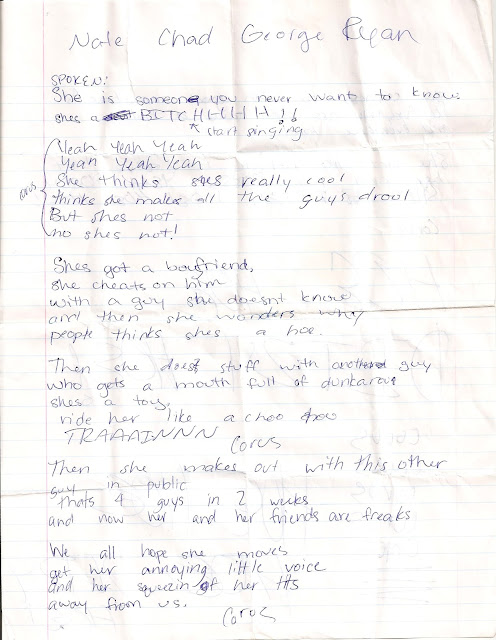 Nate Chad George Ryan
SPOKEN:
She is someone you never want to know.
shes a BITCHHHHH!!
start singing
Yeah Yeah Yeah
Yeah Yeah Yeah
corus
She thinks shes really cool
thinks she makes all the guys drool
But shes not
no shes not!
Shes got a boyfriend,
she cheats on him
with a guy she doesnt know
and then she wonders why
people thinks shes a hoe.
Then she does stuff with another guy
who gets a mouth full of dunkaroos
shes a toy,
ride her like a choo choo
TRAAAINNN
Corus
Then she makes out with this other
guy in public
thats 4 guys in 2 weeks
and now her and her friends are freaks
We all hope she moves
get her annoying little voice
and her squeezin of her tits
away from us.
Corus